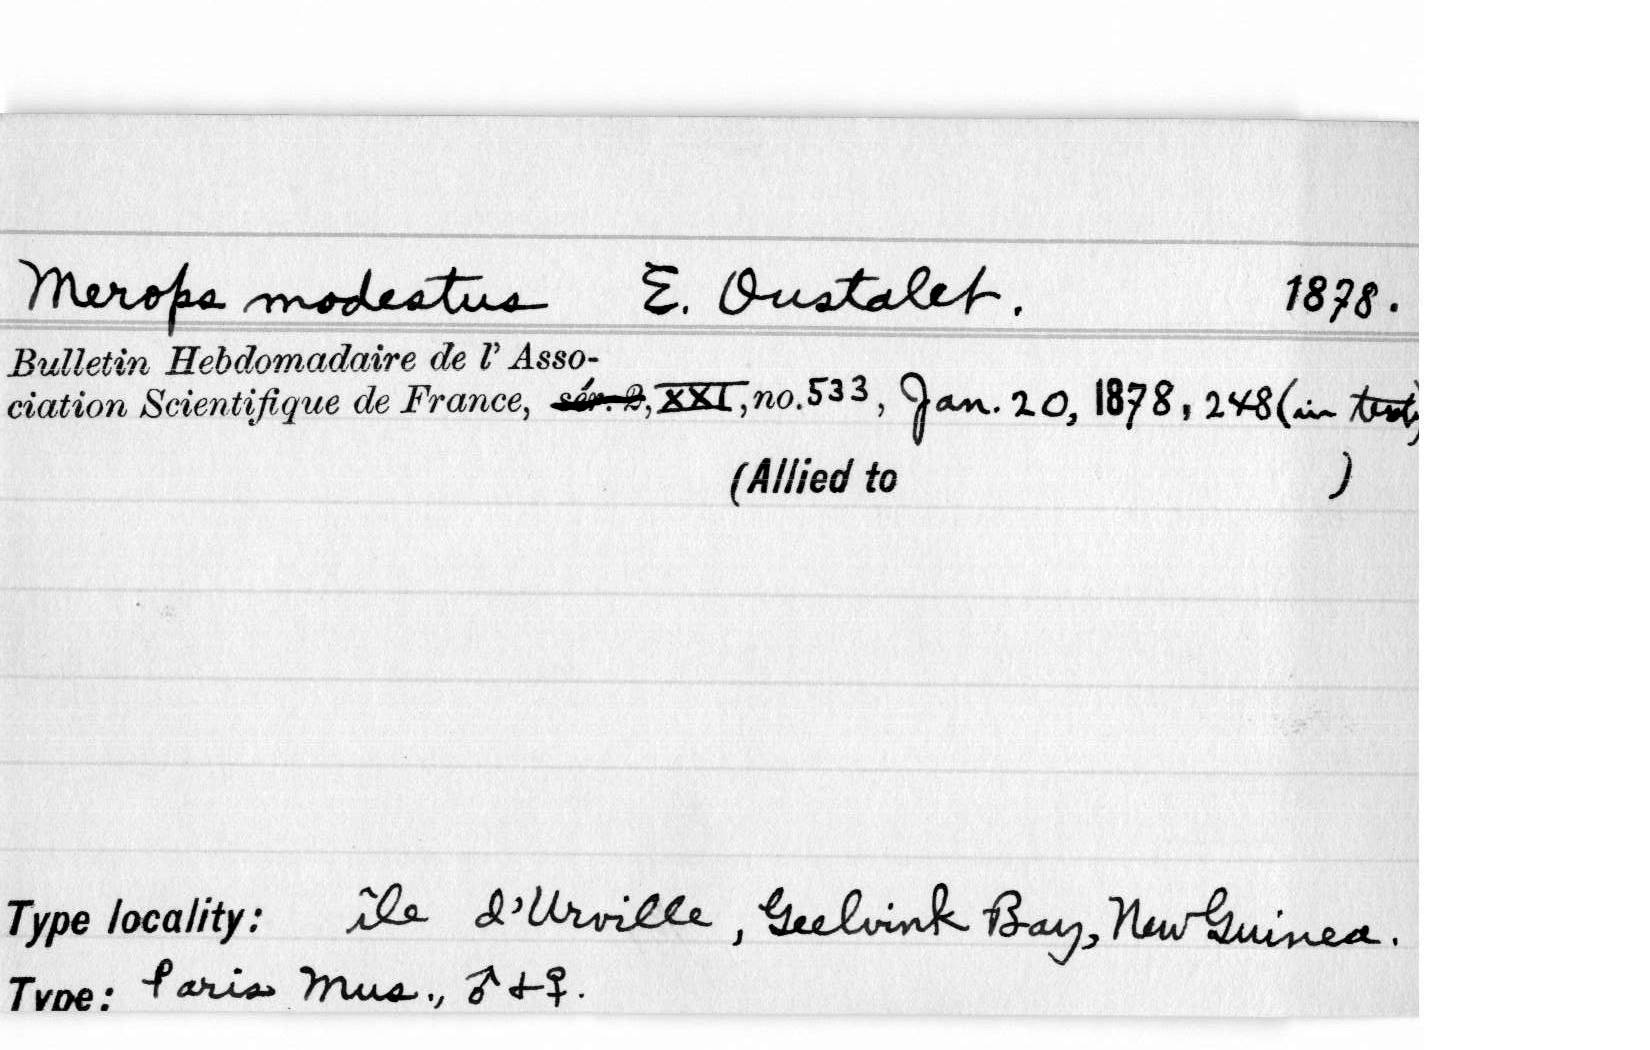 Merops modestus E. Oustalet. 1878.
Bulletin Hebdomadaire de l' Asso-
ciation Scientifique de France, sér. 2, XXI, no. 533, Jan. 20, 1878, 248 (in text)
(Allied to )
Type locality: île d'Urville, Geelvink Bay, New Guinea.
Type: Paris Mus., ♂ + ♀.